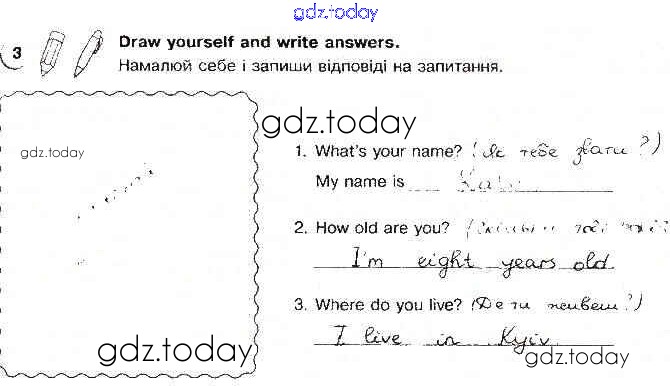 gdz.today
3
Draw yourself and write answers.
Намалюй себе і запиши відповіді на запитання.
gdz.today
gdz.today
1. What's your name? (Як тебе звати?)
My name is
2. How old are you? (Скільки тобі
I'm eight years old
3. Where do you live? (Де ти живеш?)
I live in Kyiv
gdz.today
gdz.today